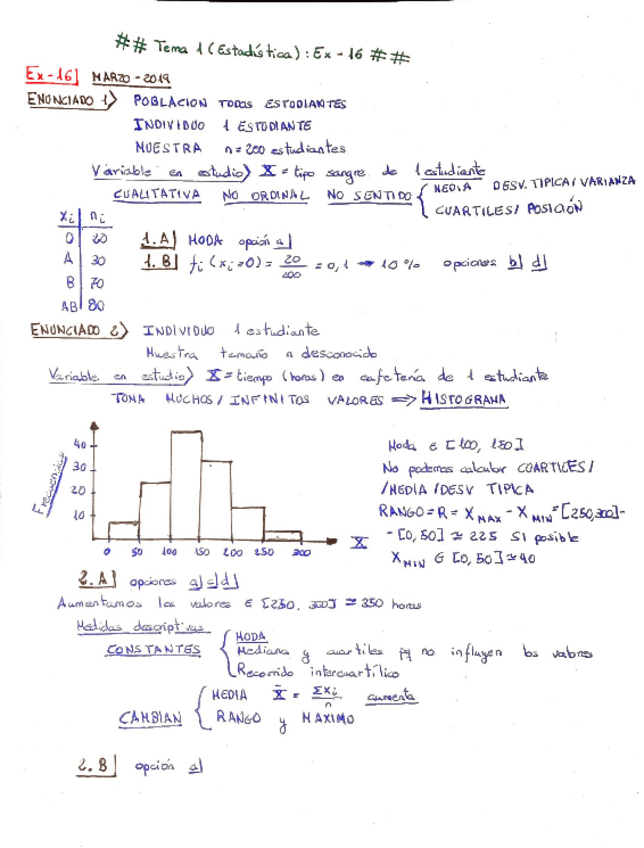 ## Tema 1 (Estadística): Ex-16 ##
Ex-16] MARZO-2019
ENUNCIADO 1) POBLACION TODOS ESTUDIANTES
INDIVIDUO 1 ESTUDIANTE
MUESTRA n=200 estudiantes
Variable en estudio) X = tipo sangre de 1 estudiante
CUALITATIVA NO ORDINAL NO SENTIDO { MEDIA DESV. TIPICA / VARIANZA
CUARTILES / POSICIÓN
xi | ni
O | 20
A | 30
B | 70
AB | 80
1.A] MODA opción a]
1.B] fi (xi=0) = 20/200 = 0,1 → 10% opciones b] d]
ENUNCIADO 2) INDIVIDUO 1 estudiante
Muestra tamaño n desconocido
Variable en estudio) X = tiempo (horas) en cafetería de 1 estudiante
TOMA MUCHOS / INFINITOS VALORES ⇒ HISTOGRAMA
Frecuencias
40
30
20
10
0 50 100 150 200 250 300 X
Moda ∈ [100, 150]
No podemos calcular CUARTICES /
/ MEDIA / DESV TIPICA
RANGO = R = X MAX - X MIN = [250,300] -
- [0, 50] ≃ 225 SI posible
X MIN ∈ [0, 50] ≃ 40
2.A] opciones a] c] d]
Aumentamos los valores ∈ [250, 300] ≃ 350 horas
Medidas descriptivas
CONSTANTES { MODA
Mediana y cuartiles pq no influyen los valores
Recorrido intercuartílico
CAMBIAN { MEDIA X̄ = Σxi/n aumenta
RANGO y MAXIMO
2.B] opción a]